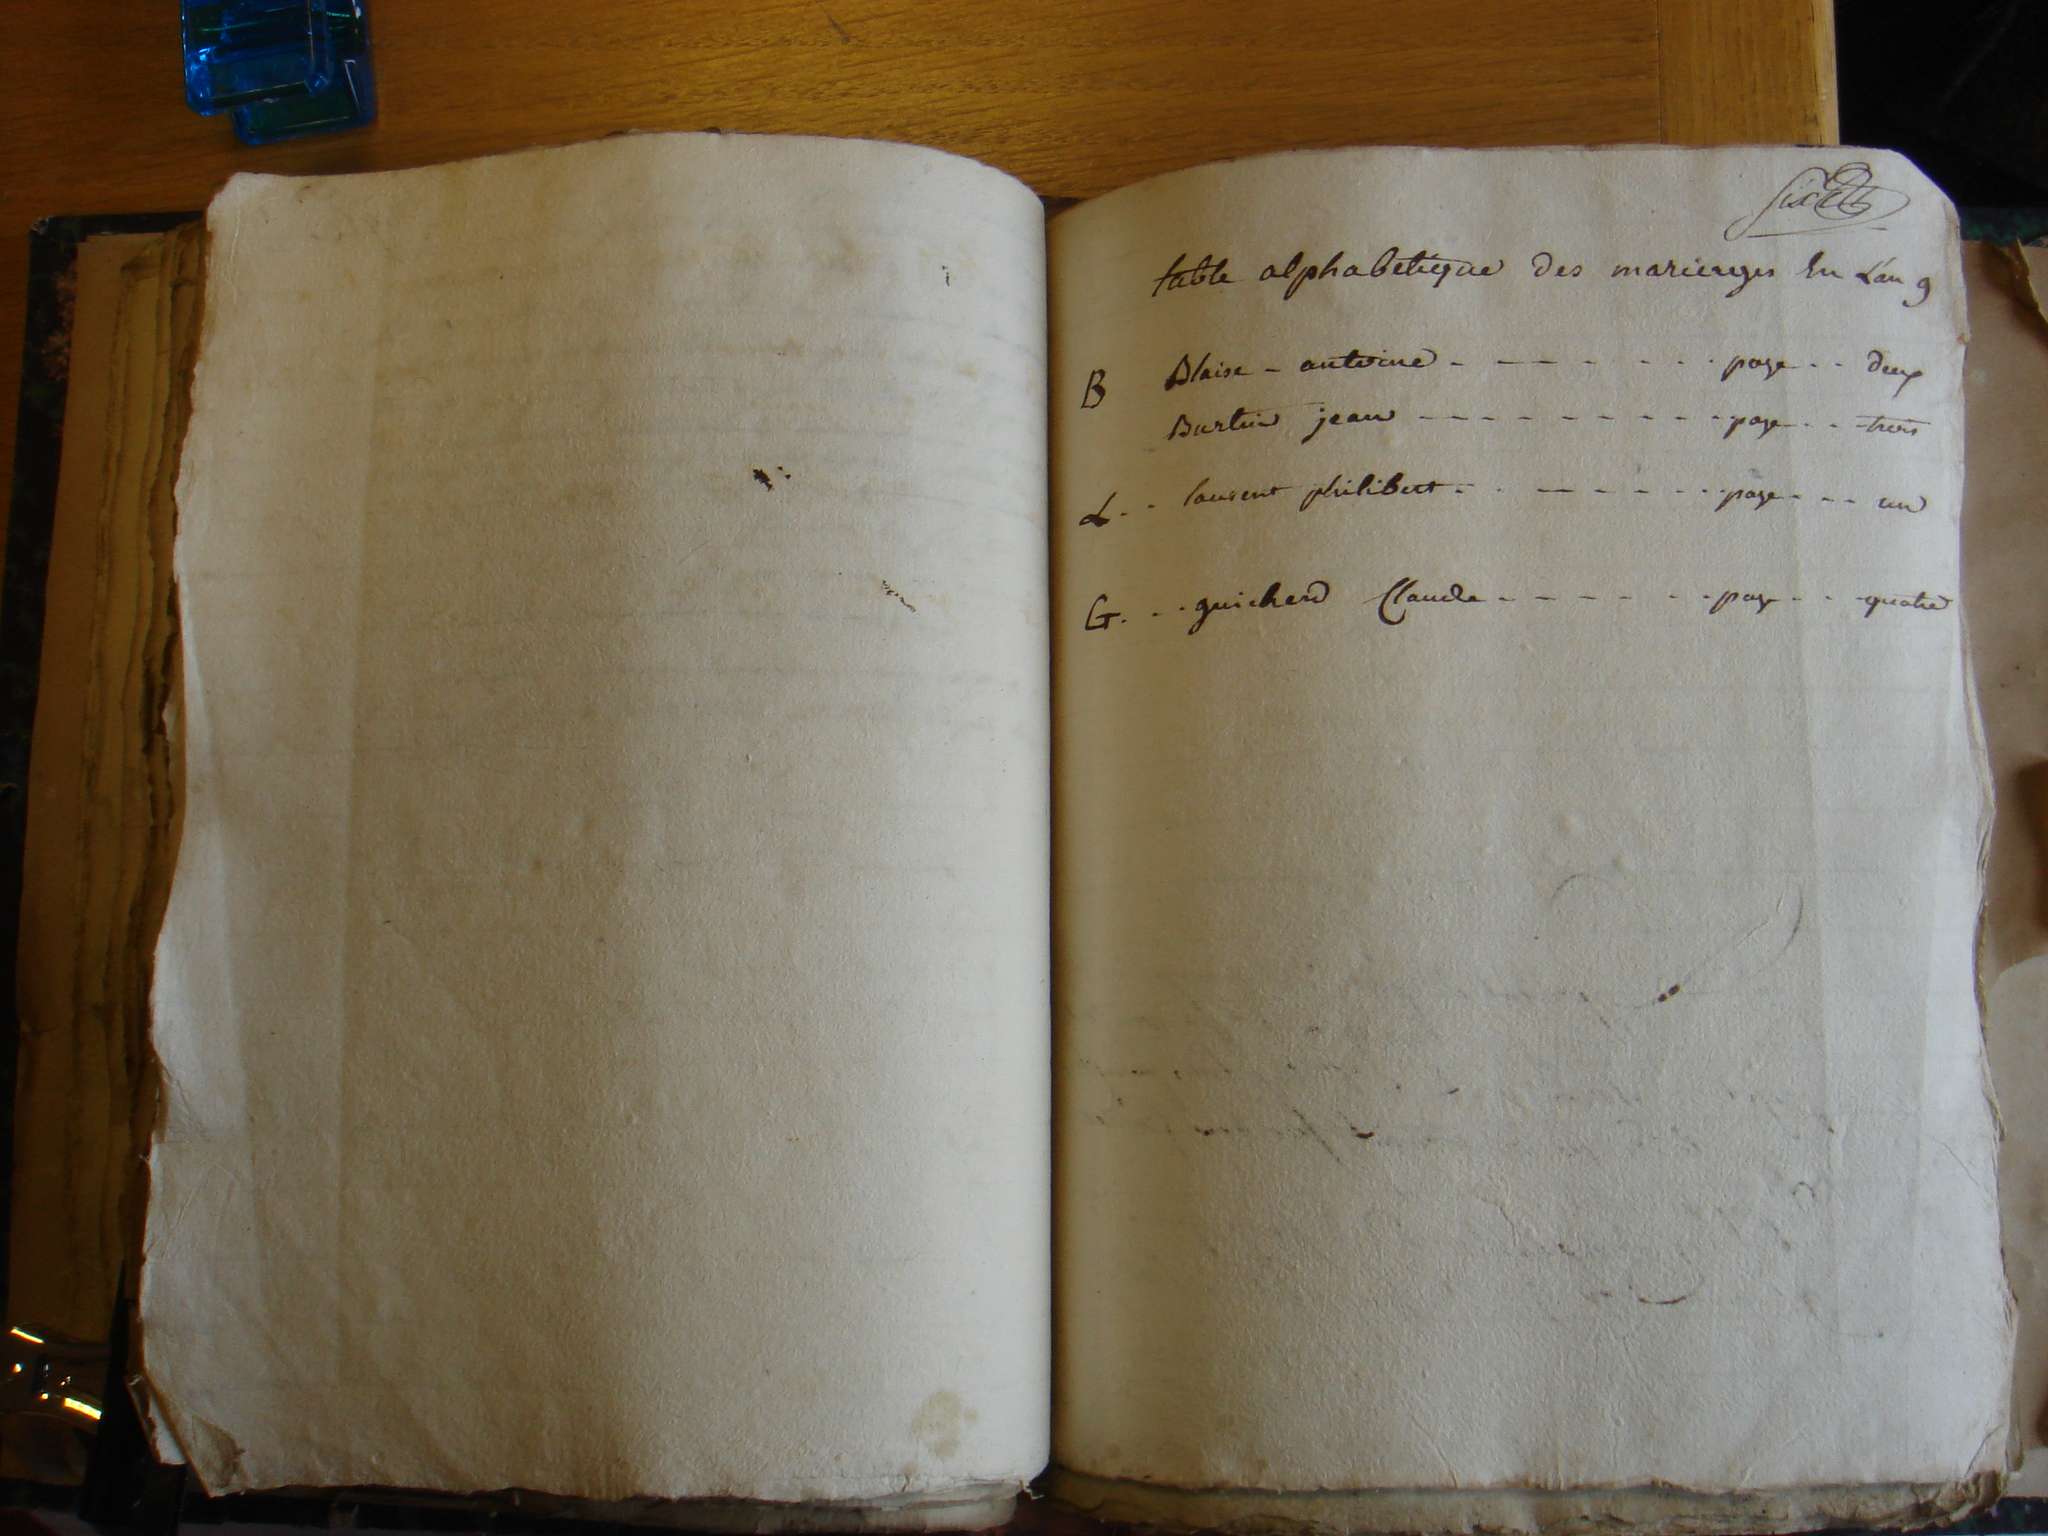 six
table alphabetiqque des marierges En L'an 9
B Blaise - antoine - - - - - - - page - - deux
Burtin jean - - - - - - - - - - page - - trois
L - - laurent philibert - - - - - - - page - - - un
G. - - guicherd Claude - - - - - - page - - quatre